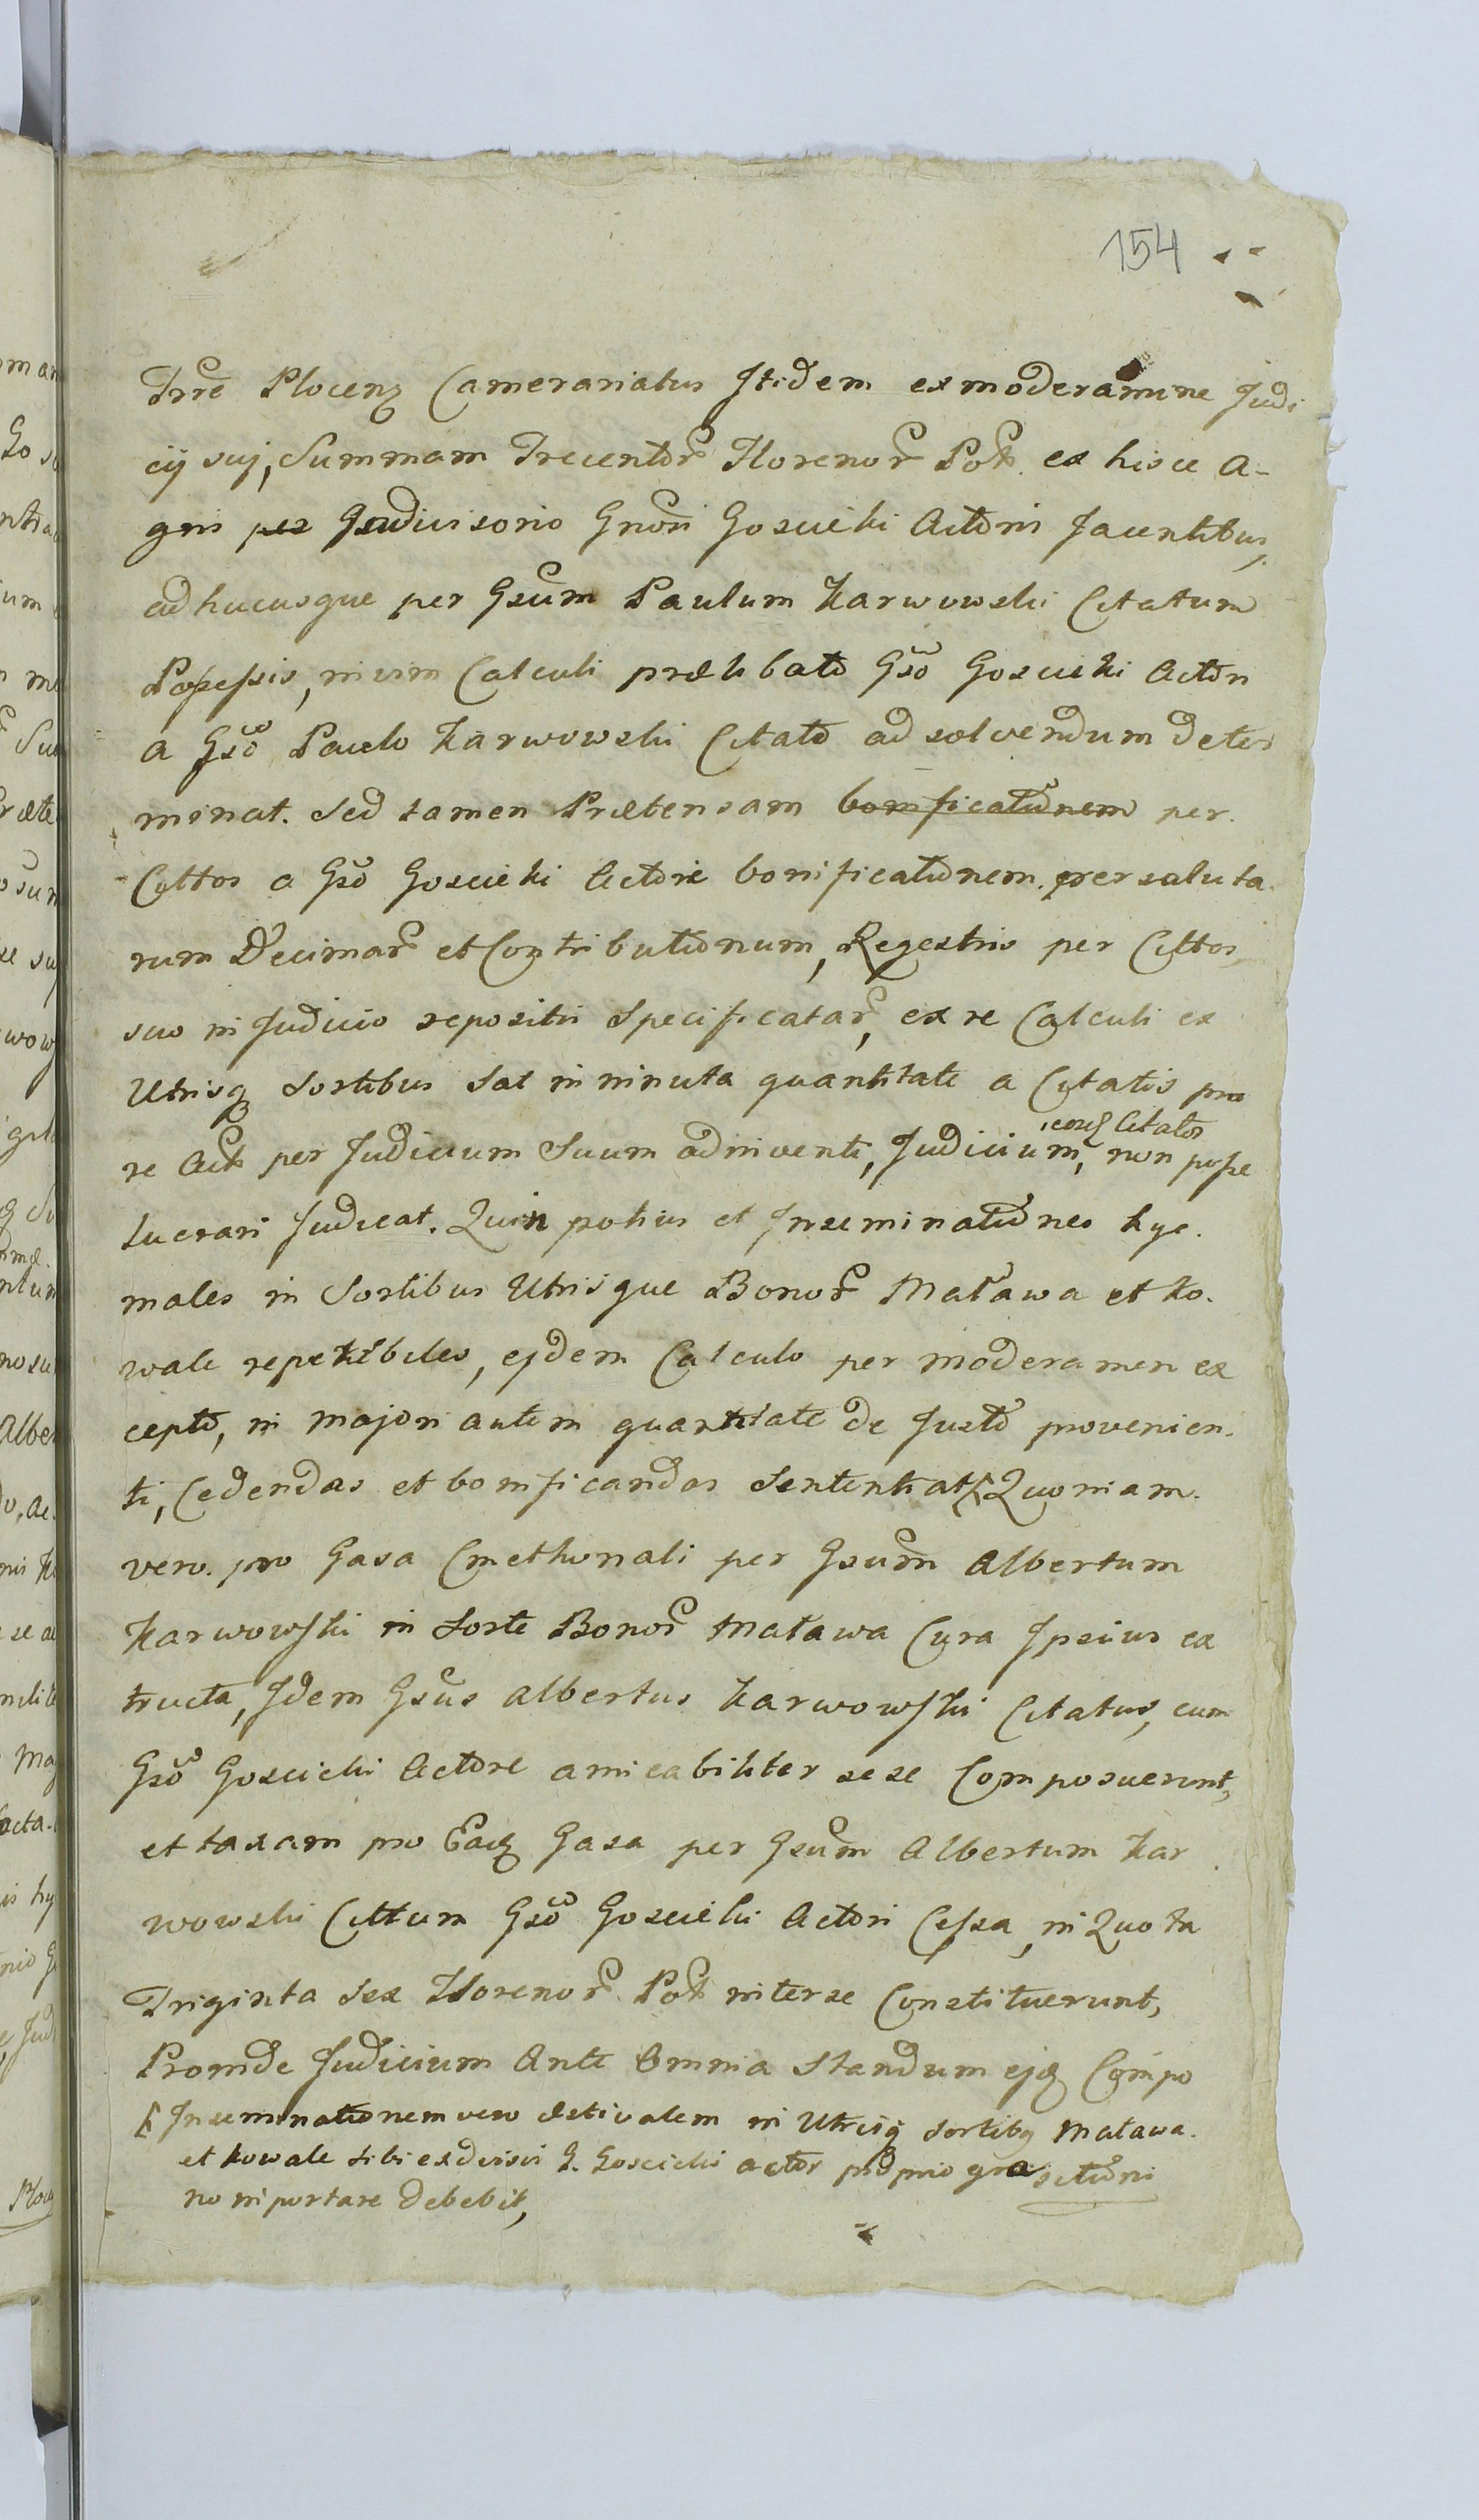 154
Trrē Plocenẓ Camerariatus Itidem ex moderamine Judi
cij suj, Summam Trecentor̃ Florenor̃ Pol. ex hisce A-
gris Indivisorio Gnõri Goscicki Actori Jacentibus,
adhucusque per Gsũm Paulum Karwowski Citatum
Possessis, in vim Calculi prælibato Gsõ Goscicki Actori
a Gsõ Paulo Karwowski Citato ad solvendum deter
minat. Sed tamen Prætensam bonificationem per
Cittos a Gsõ Goscicki Actore bonificationem persoluta
rum Decimar̃ et Contributionum, Regestris per Cittos
suo in Judicio repositis Specificatar̃, ex re Calculi ex
Utrisq̃ Sortibus Sat in minuta quantitate a Citatis pro
re Act̃ per Judicium Suum adinventi, Judicium, non posse
eosd̃ Citatos
lucrari Judicat. Quin potius et Inseminationes hye-
males in Sortibus Utrisque Bonor̃ Matawa et Ko-
wale repetibiles, ejdem Calculo per moderamen ex
cepto, in majori autem quantitate de Justo provenien-
ti, Cedendas et bonificandas Sententiat. Quoniam
vero pro Gasa Cmethonali per Gsũm Albertum
Karwowski in Sorte Bonor̃ Matawa Cura Ipsius ex
tructa, Idem Gsũs Albertus Karwowski Citatus, cum
Gsõ Goscicki Actore amicabiliter sese Composuerunt,
et taxam pro Ead̃ Gasa per Gsũm Albertum Kar
wowski Cittum Gsõ Goscicki Actori Cessa, in Quota
Triginta Sex Florenor̃ Pol. inter se Constituerunt,
Proinde Judicium Ante Omnia Standum ejd̃ Compo
sitioni
Inseminationem vero æstivalem in Utrisq̃ Sortibq̃ Matawa
et Kowale sibi ex divisis G. Goscicki actor proprio gra
no importare debebit,